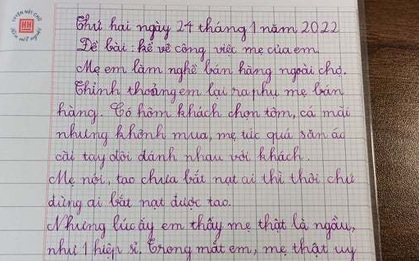 Thứ hai ngày 24 tháng 1 năm 2022
Đề bài: kể về công việc mẹ của em
Mẹ em làm nghề bán hàng ngoài chợ.
Thỉnh thoảng em lại ra phụ mẹ bán
hàng. Có hôm khách chọn tôm, cá mãi
nhưng không mua, mẹ tức quá săn áo
cài tay đòi đánh nhau với khách.
Mẹ nói, tao chưa bắt nạt ai thì thôi chứ
đừng ai bắt nạt được tao.
Nhưng lúc ấy em thấy mẹ thật là ngầu,
như 1 hiệp sĩ. Trong mắt em, mẹ thật uy